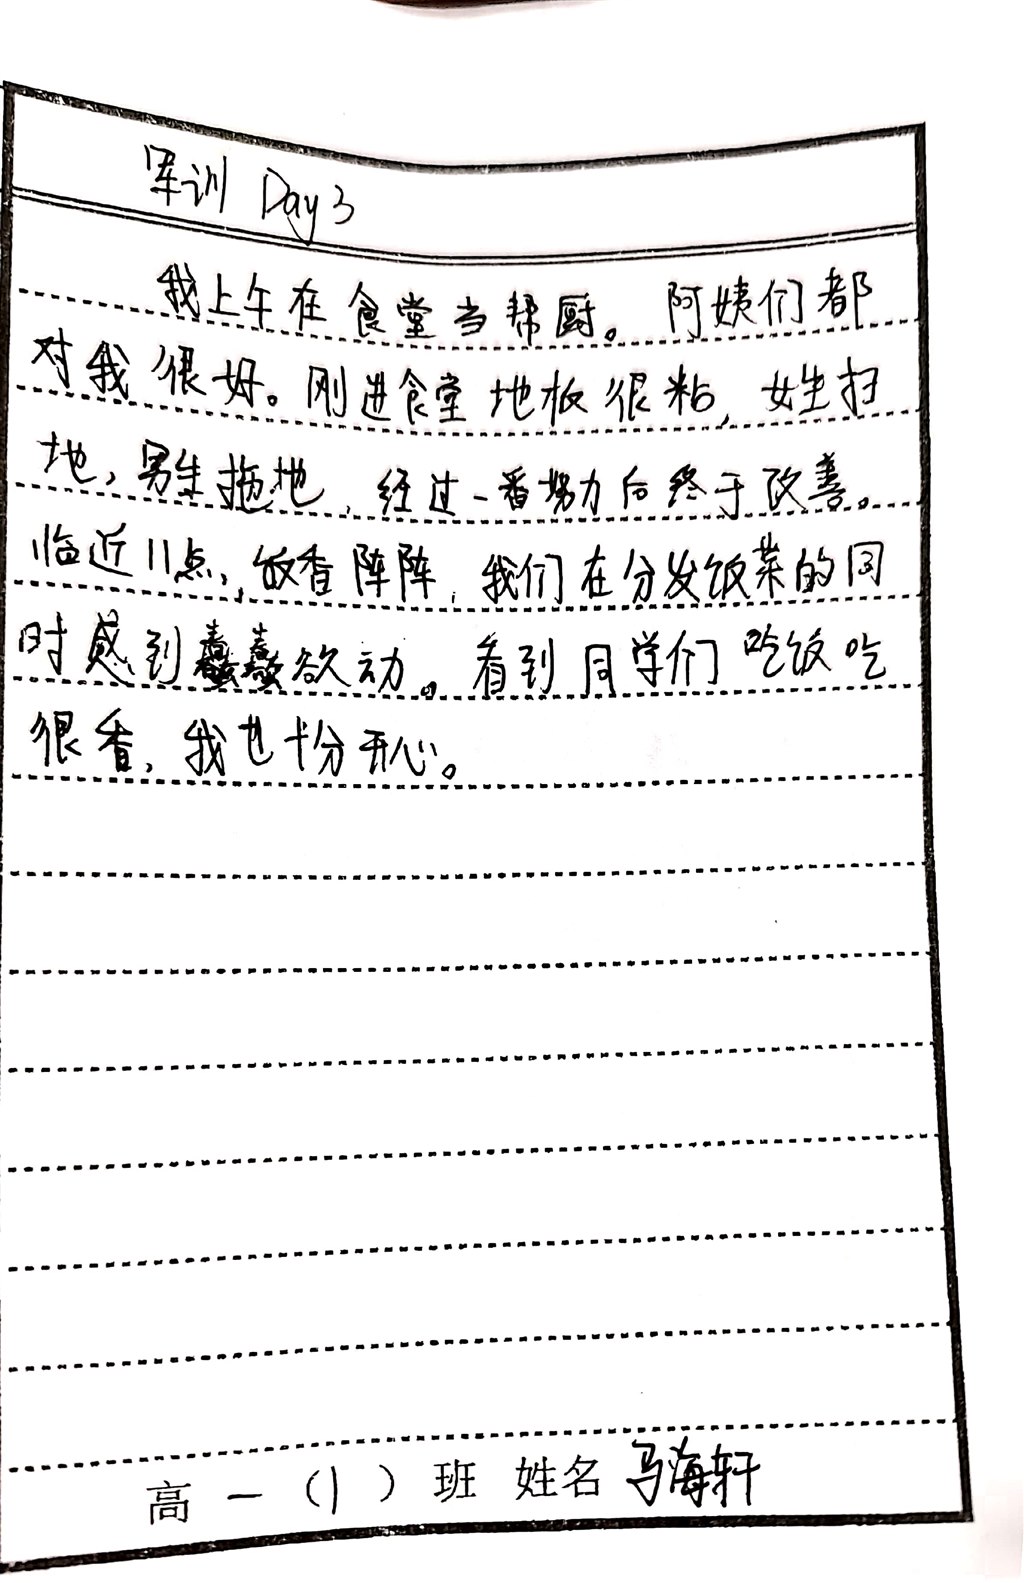 军训 Day 3
我上午在食堂当帮厨。阿姨们都
对我很好。刚进食堂地板很粘,女生扫
地,男生拖地,经过一番努力后终于改善。
临近11点,饭香阵阵,我们在分发饭菜的同
时感到蠢蠢欲动。看到同学们吃饭吃
很香,我也十分开心。
高一(1)班 姓名 马海轩